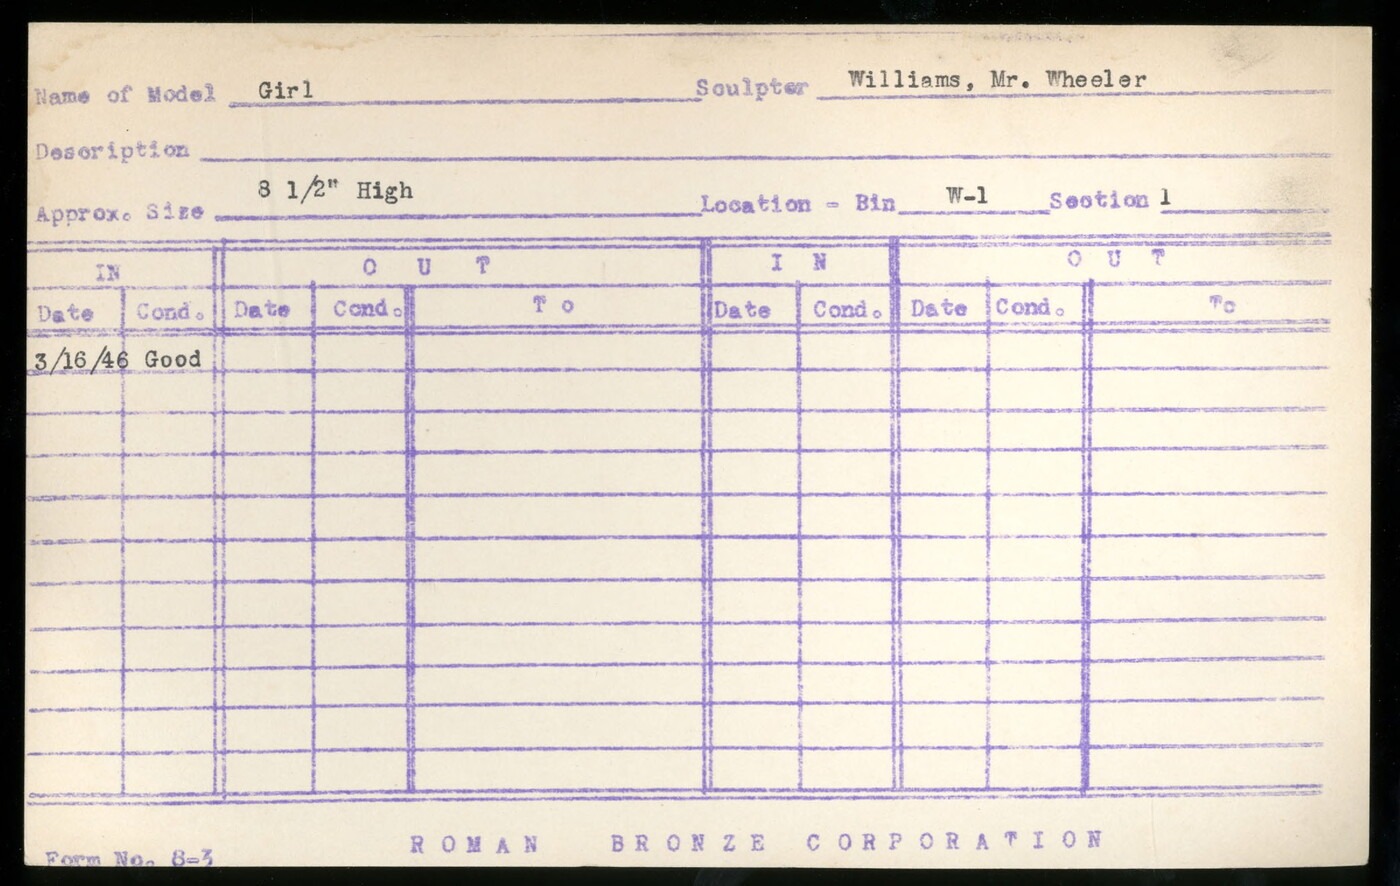 Name of Model Girl Sculpter Williams, Mr. Wheeler
Description
Approx. Size 8 1/2" High Location - Bin W-1 Section 1
IN OUT IN OUT
Date Cond. Date Cond. To Date Cond. Date Cond. To
3/16/46 Good
ROMAN BRONZE CORPORATION
Form No. S-3